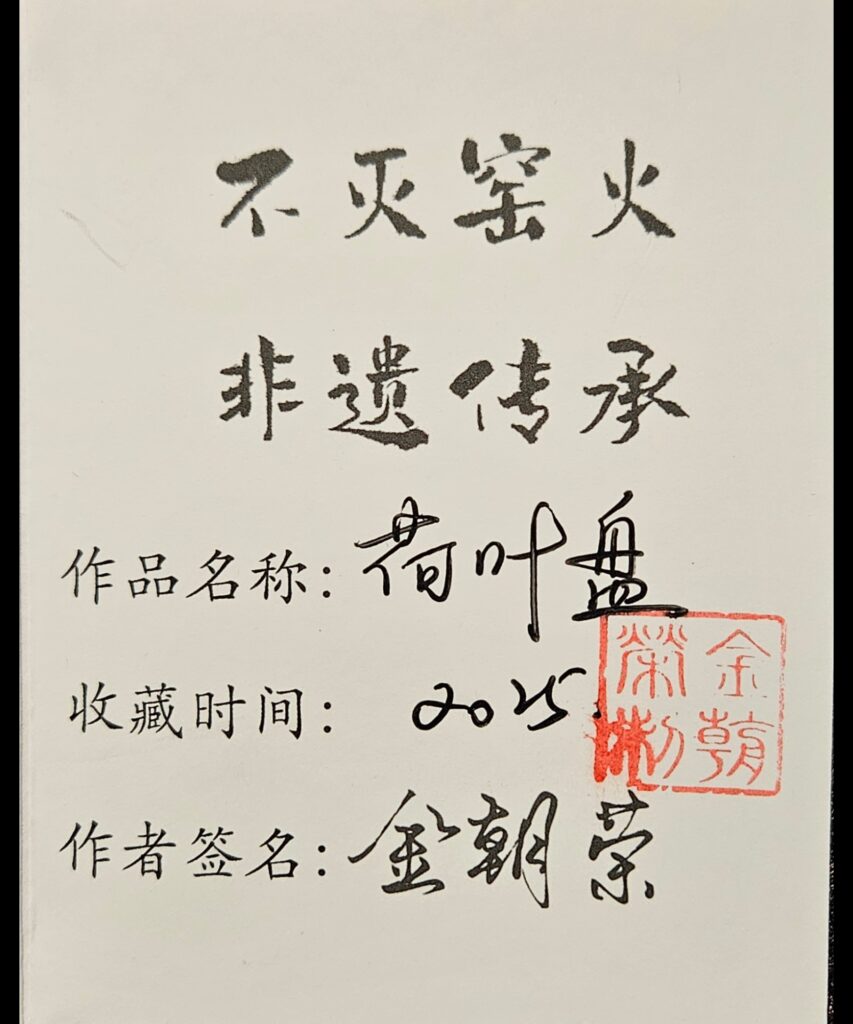 不灭窑火
非遗传承
作品名称：荷叶盘
收藏时间：2025.
作者签名：金朝荣
金朝
榮制